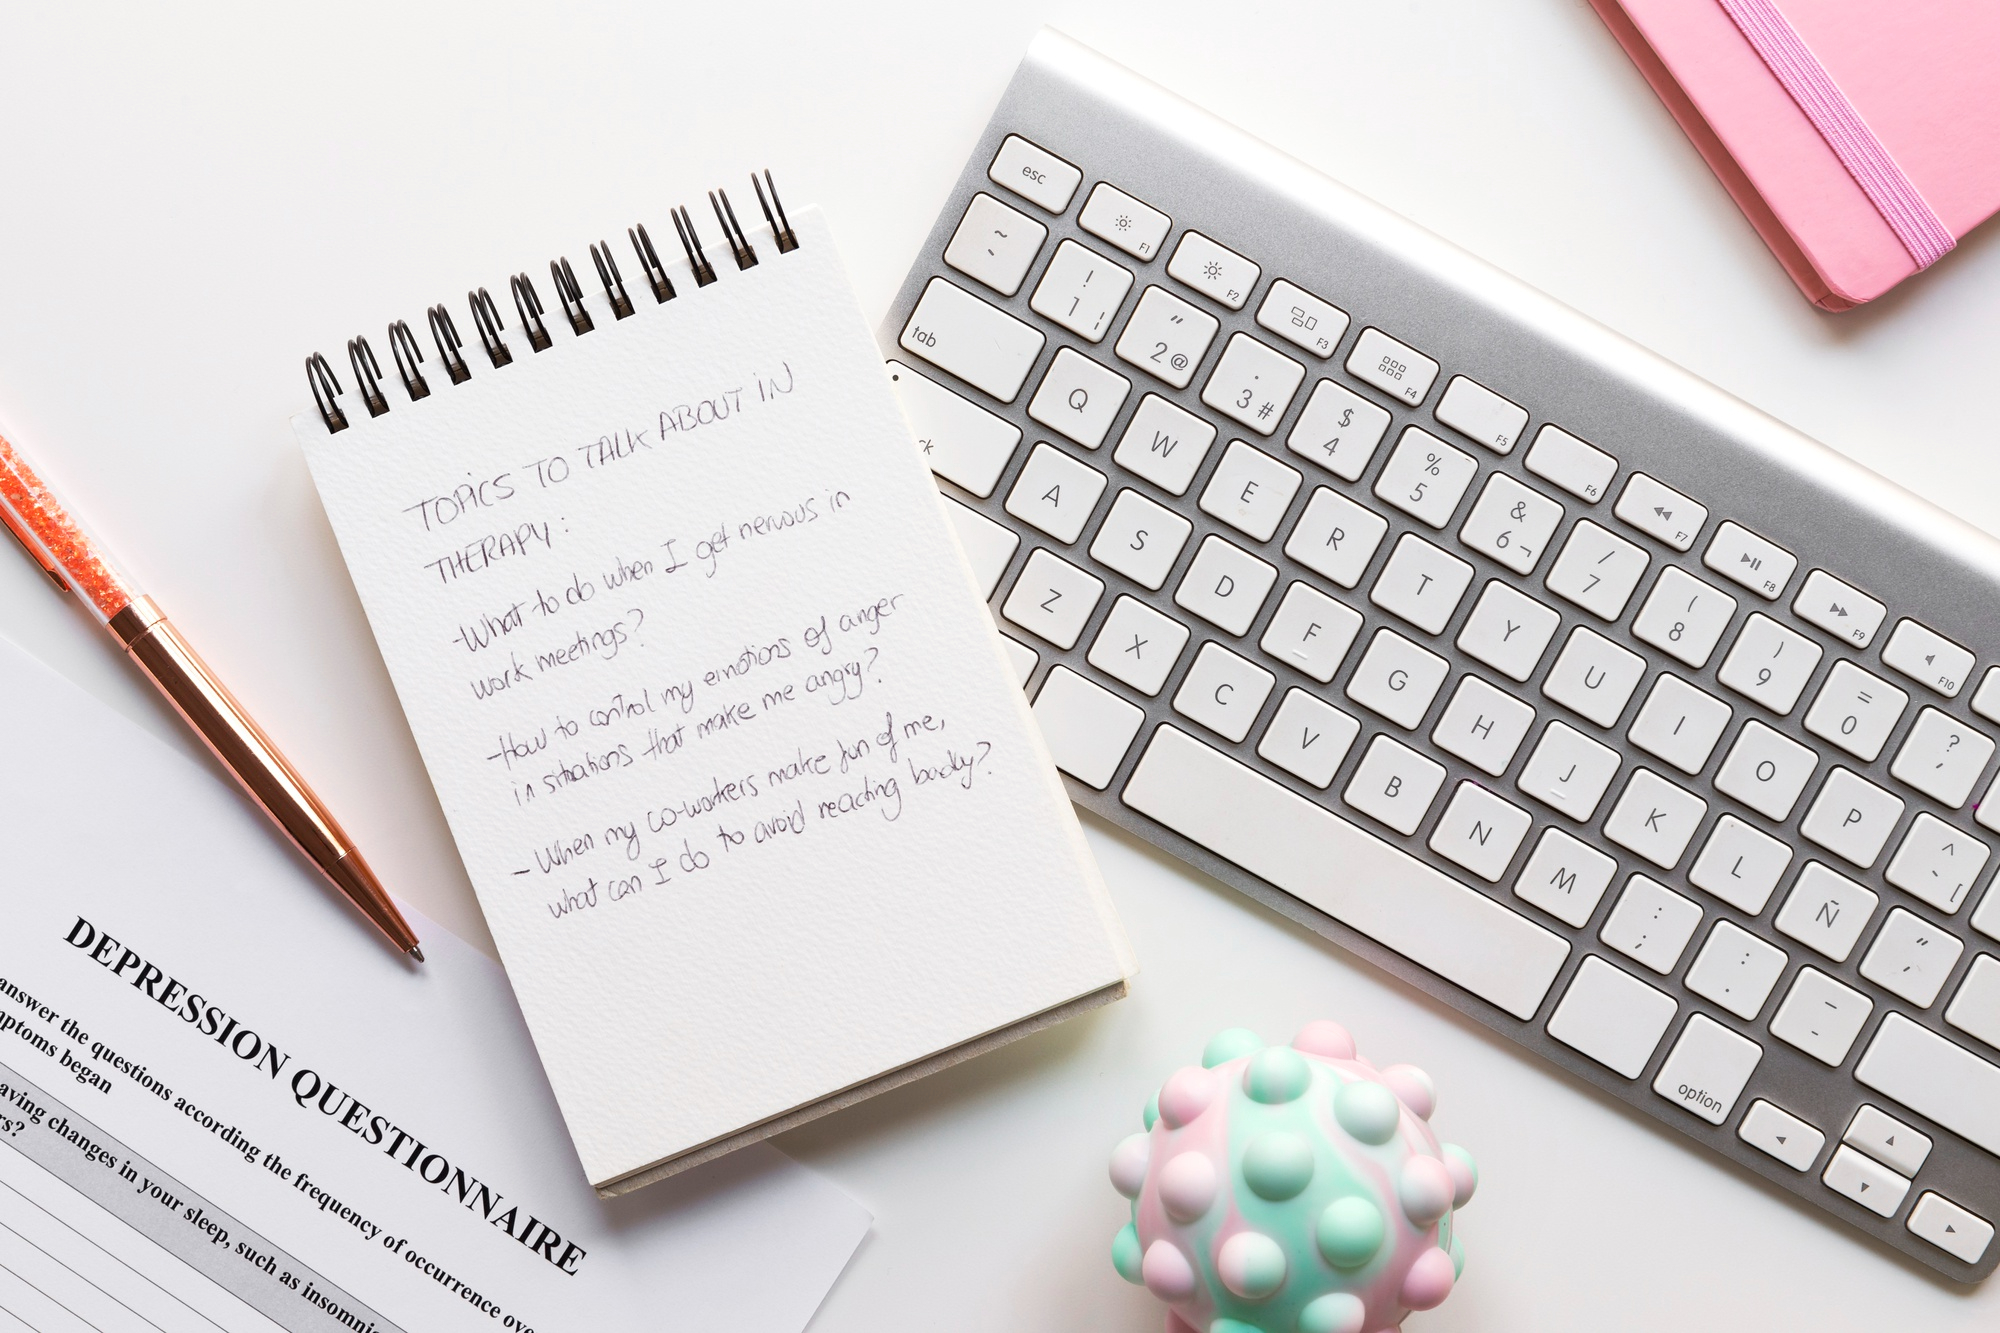 TOPICS TO TALK ABOUT IN
THERAPY:
-What to do when I get nervous in
work meetings?
-How to control my emotions of anger
in situations that make me angry?
- When my co-workers make fun of me,
what can I do to avoid reacting badly?
DEPRESSION QUESTIONNAIRE
answer the questions according the frequency of occurrence
began
changes in your sleep, such as
esc
F1
F2
F3
F4
F5
F6
F7
F8
F9
F10
~
! 1
" 2 @
· 3 #
$ 4
% 5
& 6 ¬
/ 7
( 8
) 9
= 0
? '
tab
Q
W
E
R
T
Y
U
I
O
P
^ ` [
A
S
D
F
G
H
J
K
L
Ñ
Z
X
C
V
B
N
M
; ,
: .
_ -
option